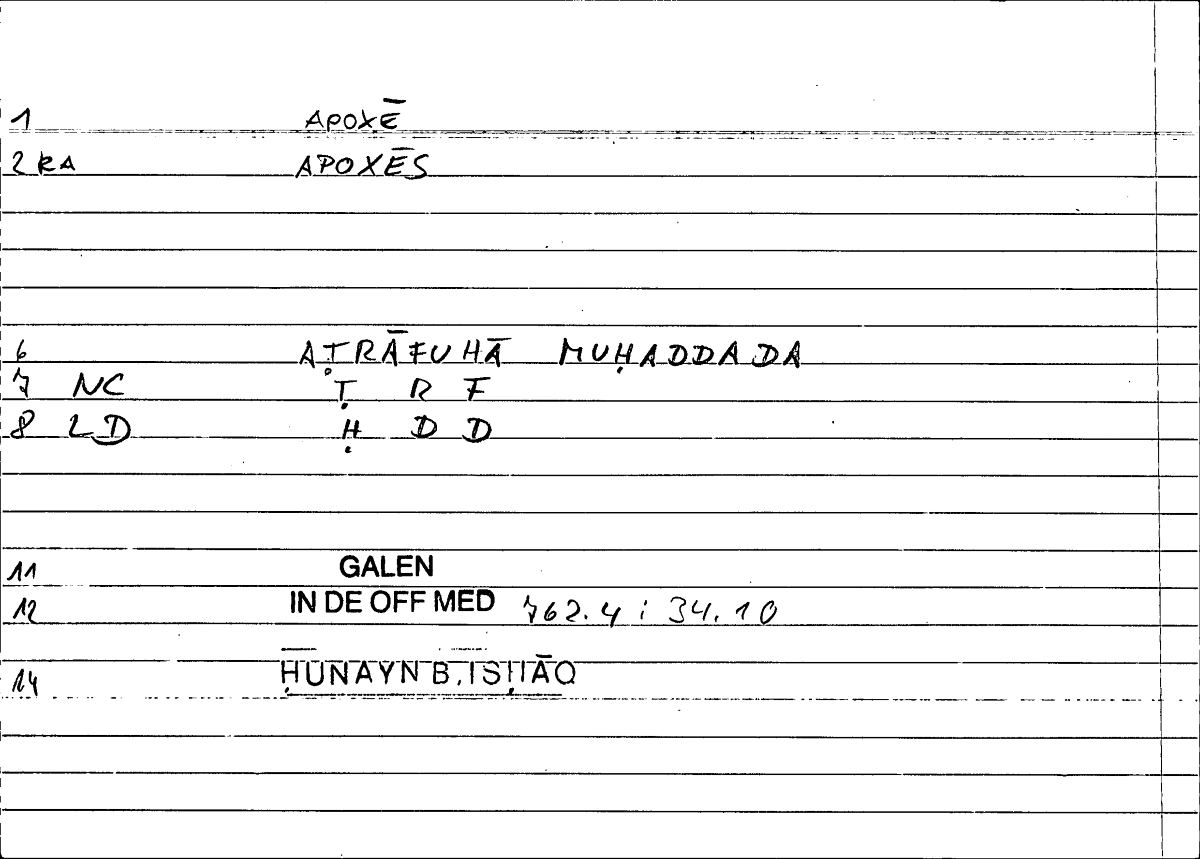 1 APOXĒ
2 RA APOXĒS
6 AṬRĀFUHĀ MUḤADDADA
7 NC Ṭ R F
8 LD Ḥ D D
11 GALEN
12 IN DE OFF MED 762.4 ; 34.10
14 ḤUNAYN B. ISḤĀQ